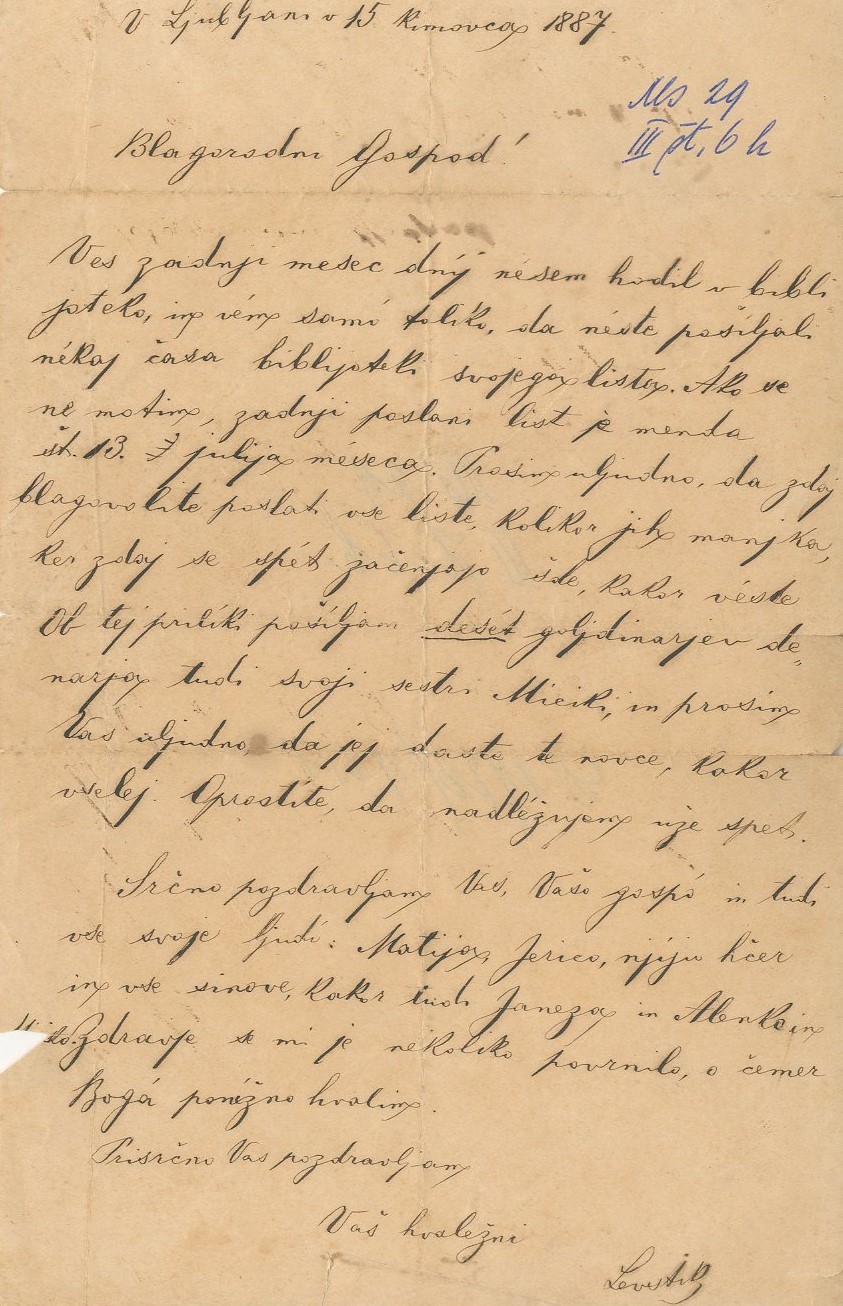 V Ljubljani v 15 kimovca 1887.
Ms 29
III št. 6 h
Blagorodni Gospod!
Ves zadnji mesec dnij nésem hodil v bibli
joteko, in vém samó toliko, da néste pošiljali
nékaj časa biblijoteki svojega lista. Ako se
ne motim, zadnji poslani list je menda
št. 13. julija méseca. Prosim uljudno, da zdaj
blagovolite poslati vse liste, kolikor jih manjka,
ker zdaj se spét začenjajo šole, kakor véste
Ob tej priliki pošiljam desét goljdinarjev de„
narja tudi svoji sestri Miciki, in prosim
Vas uljudno, da jej daste te novce, kakor
vselej. Oprostíte, da nadlézujem uže spet.
Srčno pozdravljam Vas, Vašo gospó in tudi
vse svoje ljudí: Matija, Jerico, njiju hčer
in vse sinove, kakor tudi Janeza in Alenko in
Zdravje se mi je nekoliko povrnilo, o čemer
Bogá ponižno hvalim.
Prisrčno Vas pozdravljam
Vaš hvaležni
Levstik